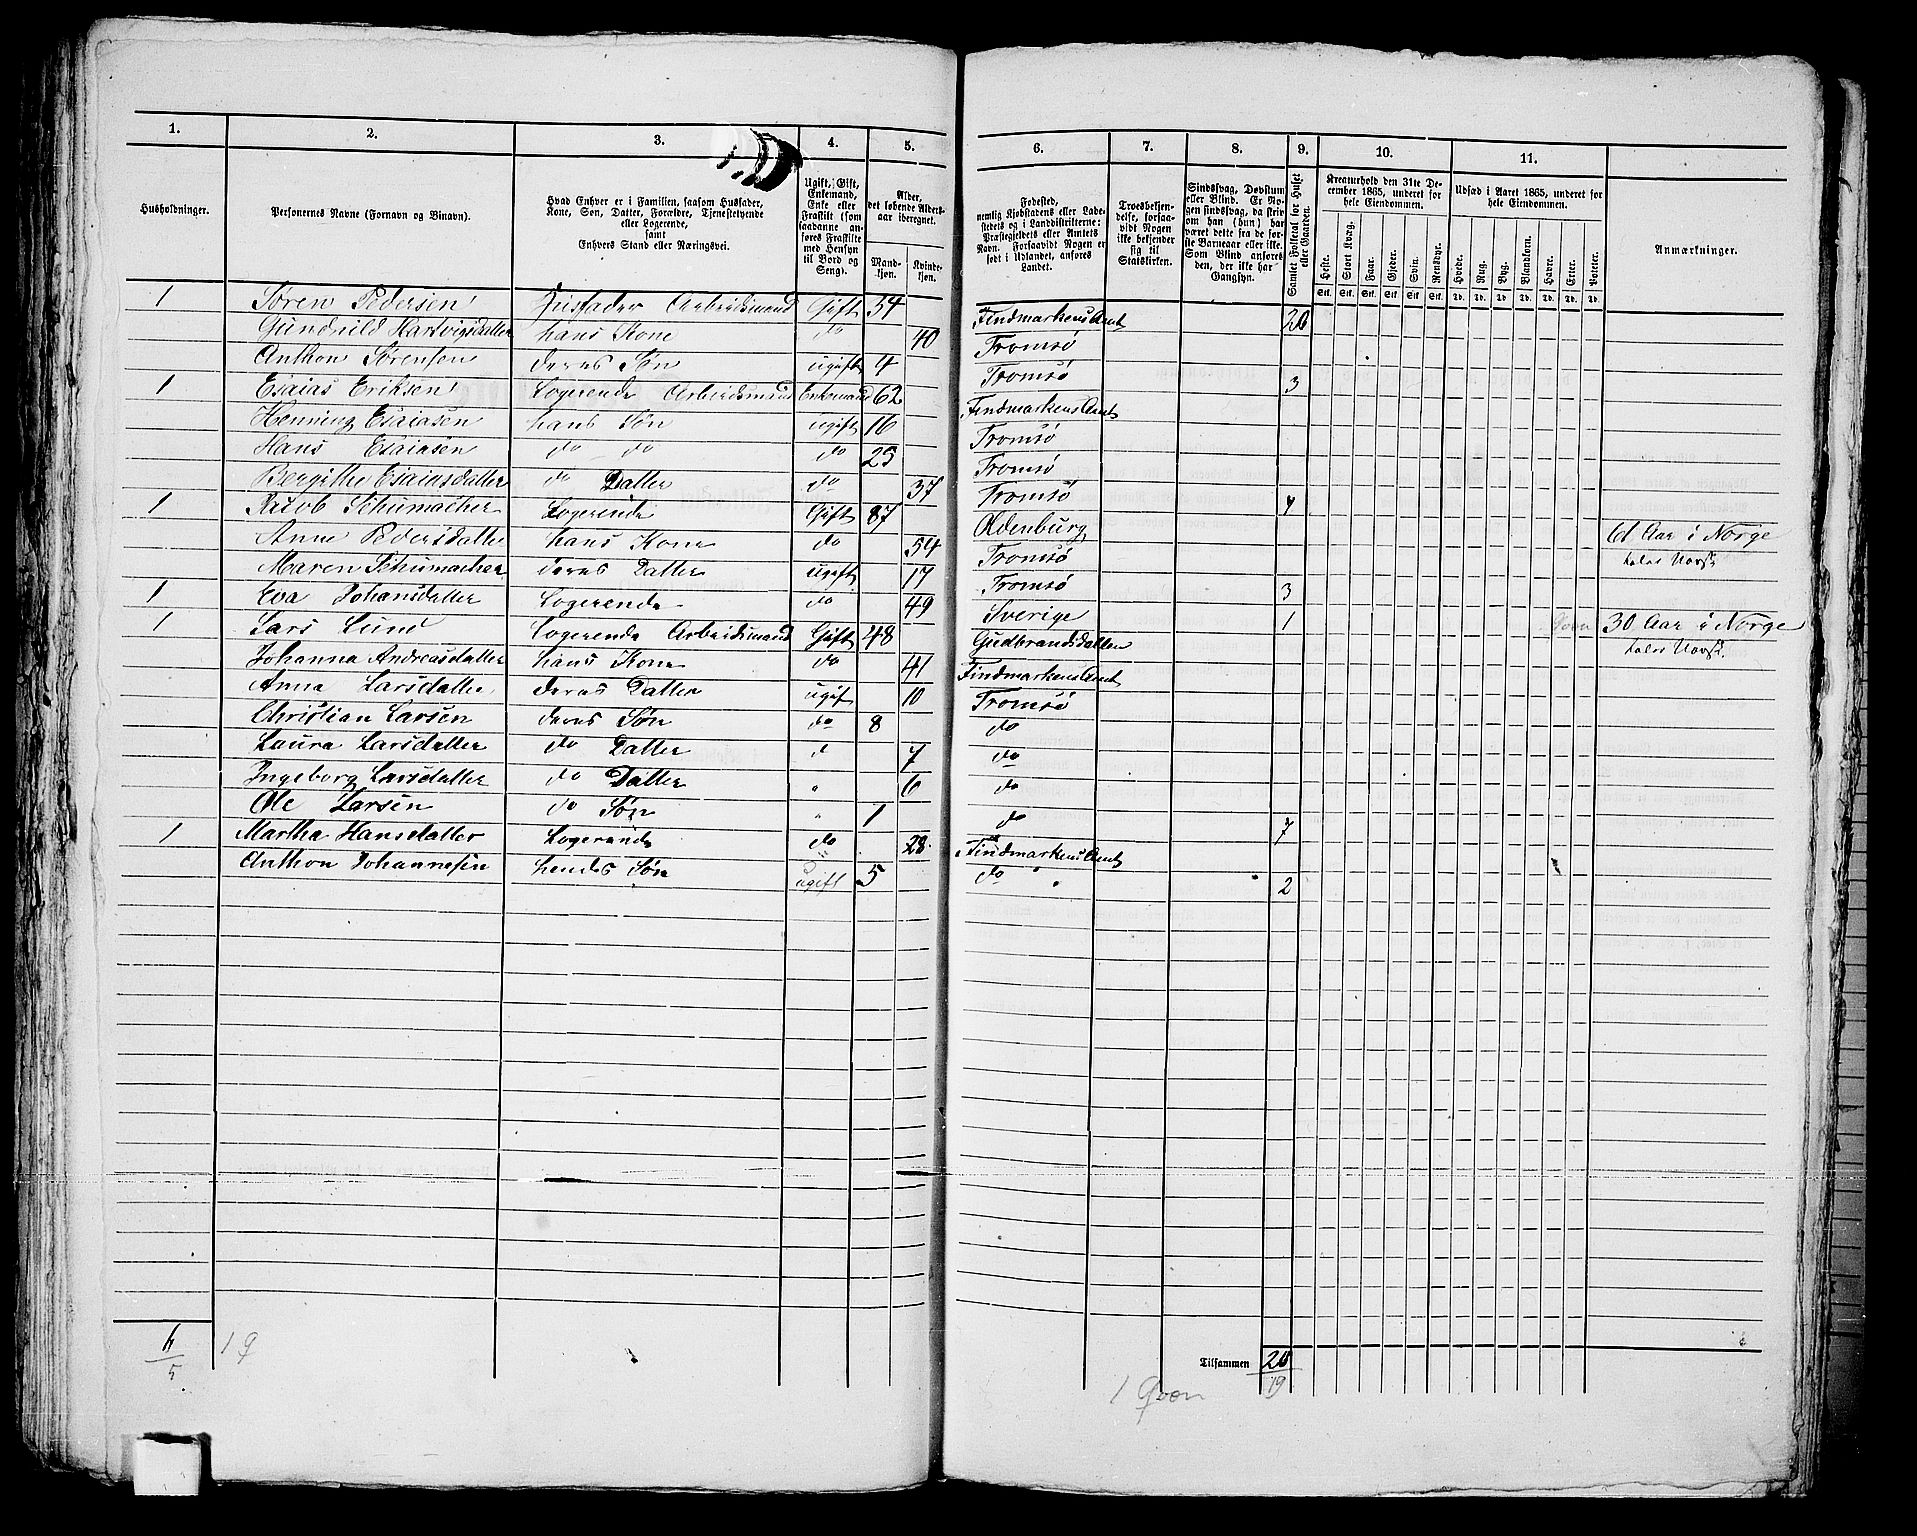 1. 2. 3. 4. 5. 6. 7. 8. 9. 10. 11.
Husholdninger.
Personernes Navne (Fornavn og Binavn).
Hvad Enhver er i Familien, saasom Husfader,
Kone, Søn, Datter, Forældre, Tjenestetyende
eller Logerende,
samt
Enhvers Stand eller Næringsvei.
Ugift, Gift,
Enkemand,
Enke eller
Fraskilt (som
saadanne an-
føres Fraskilte
med Hensyn
til Bord og
Seng).
Alder,
det løbende Alders-
aar iberegnet.
Mand-
kjøn.
Kvinde-
kjøn.
Fødested,
nemlig Kjøbstadens eller Lade-
stedets og i Landdistrikterne:
Præstegjeldets eller Amtets
Navn. Forsaavidt Nogen er
født i Udlandet, anføres
Landet.
Troesbekjen-
delse, forsaa-
vidt Nogen
ikke bekjender
sig til
Statskirken.
Sindssvag, Døvstum
eller Blind. Er No-
gen sindssvag, da skriv
om han (hun) har
været dette fra de før-
ste Barneaar eller ikke.
Som Blind anføres
den, der ikke har
Gangsyn.
Samlet Folketal for Huset
eller Gaarden.
Kreaturhold den 31te De-
cember 1865, underet for
hele Eiendommen.
Heste. Stort Kvæg. Faar. Gjeder. Svin. Rensdyr.
Stk. Stk. Stk. Stk. Stk. Stk.
Udsæd i Aaret 1865, underet for
hele Eiendommen.
Hvede. Rug. Byg. Blandkorn. Havre. Erter. Poteter.
Td. Td. Td. Td. Td. Td. Td.
Anmærkninger.
1 Søren Pedersen Husfader Arbeidsmand Gift 54 Findmarkens Amt 20
Gunhild Hartvigsdatter hans Kone do 40 Tromsø
Anthon Sørensen deres Søn ugift 4 Tromsø 3
1 Esaias Eriksen Logerende Arbeidsmand Enkemand 62 Findmarkens Amt
Henning Esaiasen hans Søn ugift 16 Tromsø
Hans Esaiasen do do do 25 Tromsø
Bergithe Esaiasdatter do Datter do 37 Tromsø 4
1 Jacob Schumacher Logerende Gift 87 Oldenburg 61 Aar i Norge
taler Norsk
Anne Pedersdatter hans Kone do 54 Tromsø
Maren Schumacher deres Datter ugift 17 Tromsø 3
1 Eva Johansdatter Logerende do 49 Sverige 1 Qvæn 30 Aar i Norge
taler Norsk.
1 Lars Lund Logerende Arbeidsmand Gift 48 Gudbrandsdalen
Johanna Andreasdatter hans Kone do 41 Findmarkens Amt
Anna Larsdatter deres Datter ugift 10 Tromsø
Christian Larsen deres Søn do 8 do
Laura Larsdatter do Datter 7 do
Ingeborg Larsdatter do Datter " 6 do
Ole Larsen do Søn " 1 do 7
1 Martha Hansdatter Logerende do 28 Findmarkens Amt
Anthon Johannesen hendes Søn ugift 5 do 2
6 19
5
Tilsammen 20
19
1 Qvæn